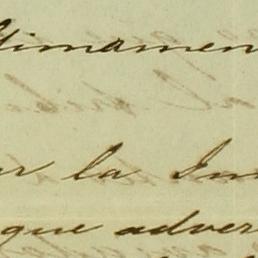 ltimamen
r la Ins
que adver